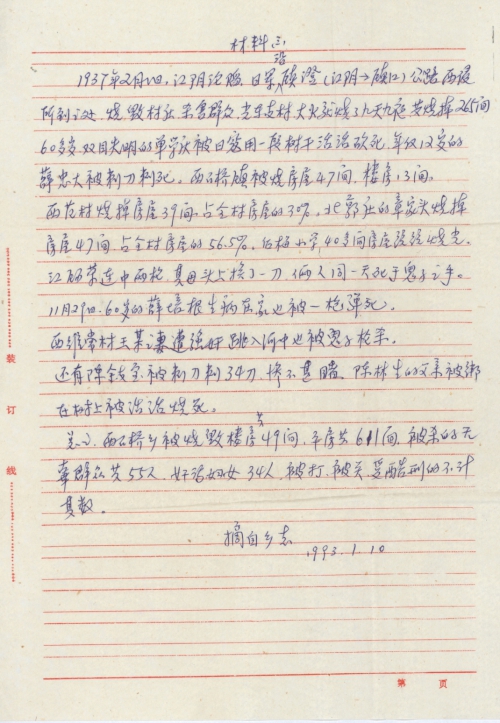 材料三
沿
1937年2月1日,江阴沦陷,日军 镇澄(江阴→镇江)公路西段
所到之处 烧毁村庄 杀害群众 大火 烧了九天九夜 共烧掉265间
60多岁双目失明的单学 被日寇用一段树干活活砍死,年仅12岁的
薛忠大被刺刀刺死。西石桥镇被烧房屋47间,楼房13间。
西 村烧掉房屋39间,占全村房屋的30%,北 的章家头烧掉
房屋47间,占全村房屋的56.5%, 小学40多间房屋 烧光。
江 荣连中两枪 其母头上挨了一刀 俩人同一天死于鬼子之手。
11月29日 60岁的薛培根生病在家也被一枪弹死。
西 村王某之妻遭强奸跳入河中也被鬼子枪杀。
还有陈 宝被刺刀刺34刀,惨不其睹,陈林生的父亲被绑
在树上被活活烧死。
共
总之,西石桥乡被烧毁楼房49间,平房共611间,被杀的无
辜群众共55人,奸污妇女34人,被打、被关、受酷刑的不计
其数。
摘自乡志
1993.1.10
装
订
线
第 页